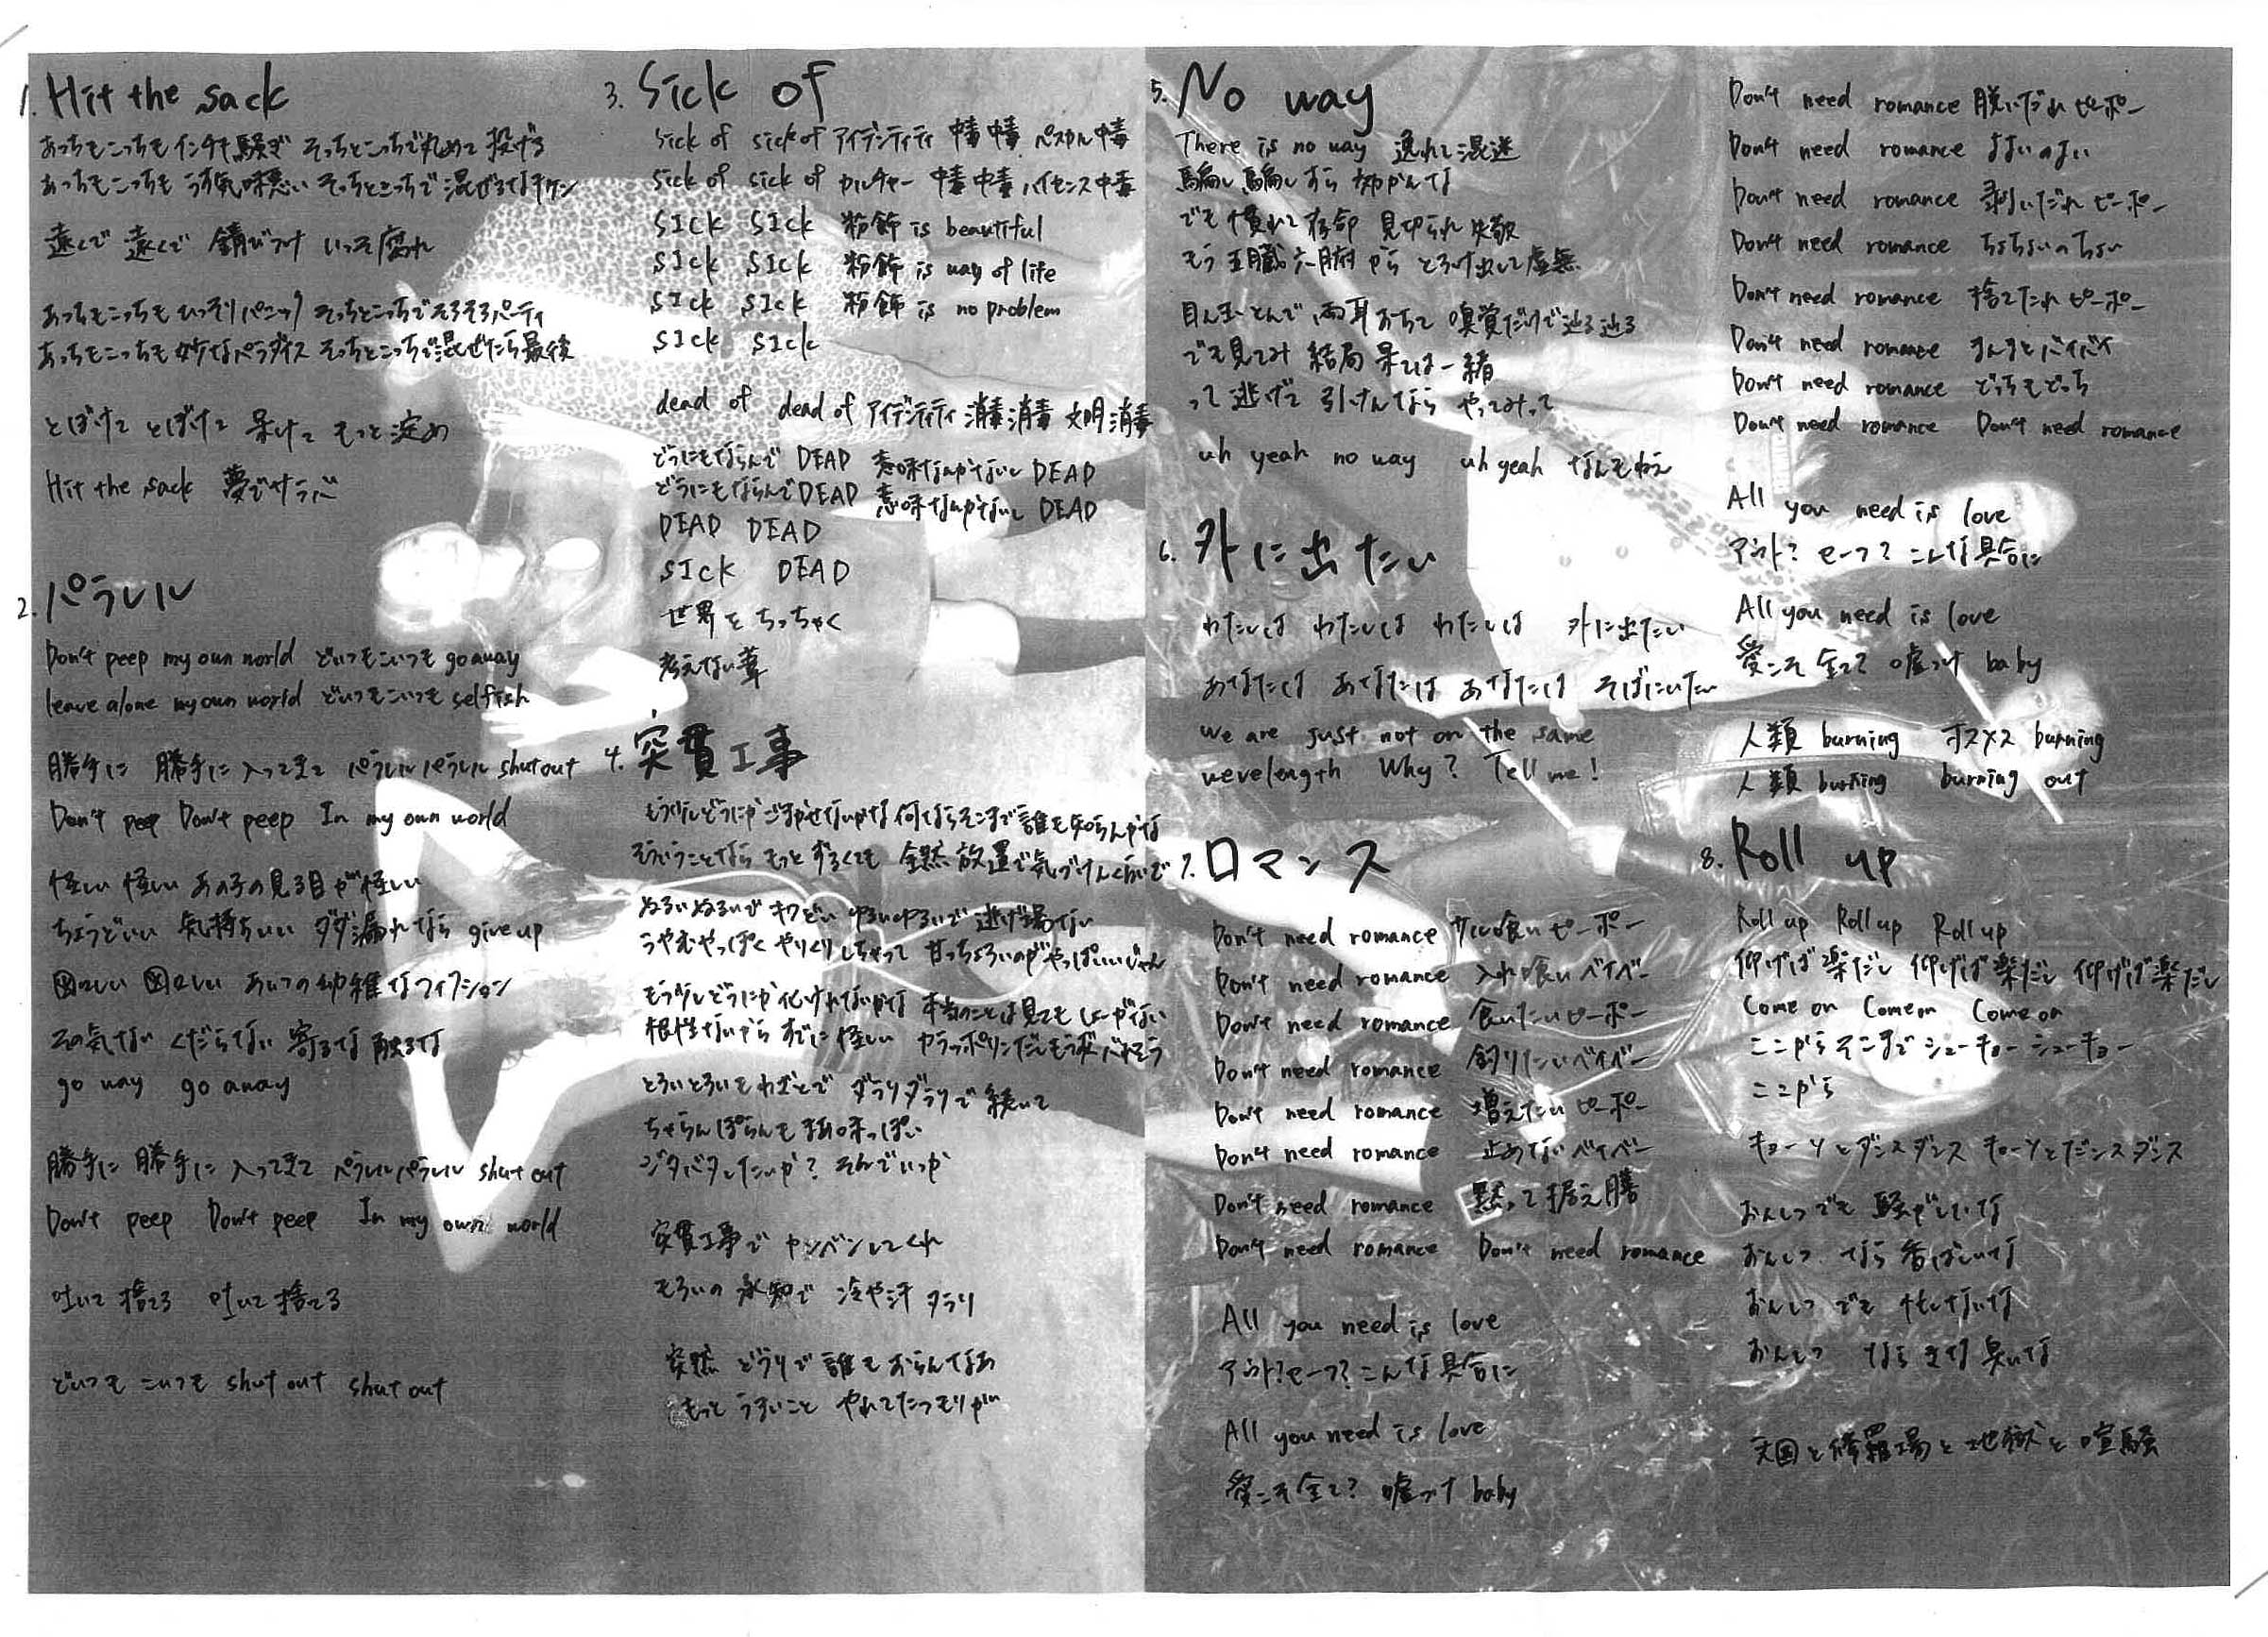 1. Hit the sack
あっちもこっちもインチキ騒ぎ そっちとこっちで丸めて投げる
あっちもこっちもうす気味悪い そっちとこっちで混ぜるなキケン
遠くで 遠くで 錆びつけ いっそ腐れ
あっちもこっちもひっそりパニック そっちとこっちでそろそろパーティ
あっちもこっちも妙なパラダイス そっちとこっちで混ぜたら最後
とぼけて とぼけて 呆けて もっと淀め
Hit the sack 夢でサラバ
2. パラレル
Don't peep my own world どいつもこいつも go away
leave alone my own world どいつもこいつも selfish
勝手に 勝手に 入ってきて パラレルパラレル shut out
Don't peep Don't peep In my own world
怪しい 怪しい あの子の見る目が怪しい
ちょうどいい 気持ちいい ダダ漏れなら give up
図々しい 図々しい あいつの幼稚なフィクション
その気ない くだらない 寄るな 触るな
go way go away
勝手に 勝手に 入ってきて パラレルパラレル shut out
Don't peep Don't peep In my own world
吐いて捨てる 吐いて捨てる
どいつも こいつも shut out shut out
3. Sick of
Sick of sick of アイデンティティ 中毒 中毒 パスカル中毒
Sick of sick of カルチャー 中毒 中毒 ハイセンス中毒
SICK SICK 粉飾 is beautiful
SICK SICK 粉飾 is way of life
SICK SICK 粉飾 is no problem
SICK SICK
dead of dead of アイデンティティ 消毒 消毒 文明 消毒
どうにもならんで DEAD 意味なかないし DEAD
どうにもならんで DEAD 意味なかないし DEAD
DEAD DEAD
SICK DEAD
世界を ちっちゃく
考えない葦
4. 突貫工事
もう少しどうにか ごまかせないかな 何ならそこまで誰も知らんかな
そういうことなら もっと ずるくても 全然 放置で気づけんくらいで
ぬるいぬるいで キワどい ゆるいゆるいで 逃げ場ない
うやむやっぽく やりくりしちゃって 甘っちょろいのが やっぱいいじゃん
もう少しどうにか 化けれないかな 本当のことは見てもしょーがない
根性ないから すでに怪しい カラッポリンだし もうボベそう
とろいとろいも わざとで ダラリダラリで 続いて
ちゃらんぽらんも 真味っぽい
ジタバタしたいか? そんでいっか
突貫工事で カンベンしてくれ
もろいの 承知で 冷や汗 タラリ
突然 どうりで 誰も おらんなぁ
もっと うまいこと やれてたつもりが
5. No way
There is no way 逸れて混迷
騙し騙しすら 効かんな
でも慣れて存命 見切られ失敬
もう 五臓六腑から とろけ出して虚無
目ん玉とんで 両耳おちて 嗅覚だけで辿る辿る
でも見てみ 結局 果ては一緒
って 逃げて 引けんなら やってみって
uh yeah no way uh yeah なんもねぇ
6. 外に出たい
わたしは わたしは わたしは 外に出たい
あなたは あなたは あなたは そばにいたい
we are just not on the same
wevelength Why? Tell me!
7. ロマンス
Don't need romance 共喰いピーポー
Don't need romance 入れ喰いベイベー
Don't need romance 食いたいピーポー
Don't need romance 釣りたいベイベー
Don't need romance 増えたいピーポー
Don't need romance 止めないベイベー
Don't need romance 黙って据え膳
Don't need romance Don't need romance
All you need is love
アウト?セーフ? こんな具合に
All you need is love
愛こそ全て? 嘘つけ baby
Don't need romance 脱いだれピーポー
Don't need romance よよいのよい
Don't need romance 剥いだれピーポー
Don't need romance ちょちょいのちょい
Don't need romance 捨てたれピーポー
Don't need romance まんまとバイバイ
Don't need romance どっちもどっち
Don't need romance Don't need romance
All you need is love
アウト? セーフ? こんな具合に
All you need is love
愛こそ全て? 嘘つけ baby
人類 burning オスメス burning
人類 burning burning out
8. Roll up
Roll up Roll up Roll up
仰げば楽だし 仰げば楽だし 仰げば楽だし
Come on Come on Come on
ここからそこまで シューキョー シューキョー
ここから
キョーソとダンスダンス キョーソとダンスダンス
おんしつでも 騒がしいな
おんしつ なら 香ばしいな
おんしつ でも 忙しないな
おんしつ なら きな臭いな
天国と修羅場と地獄と喧騒